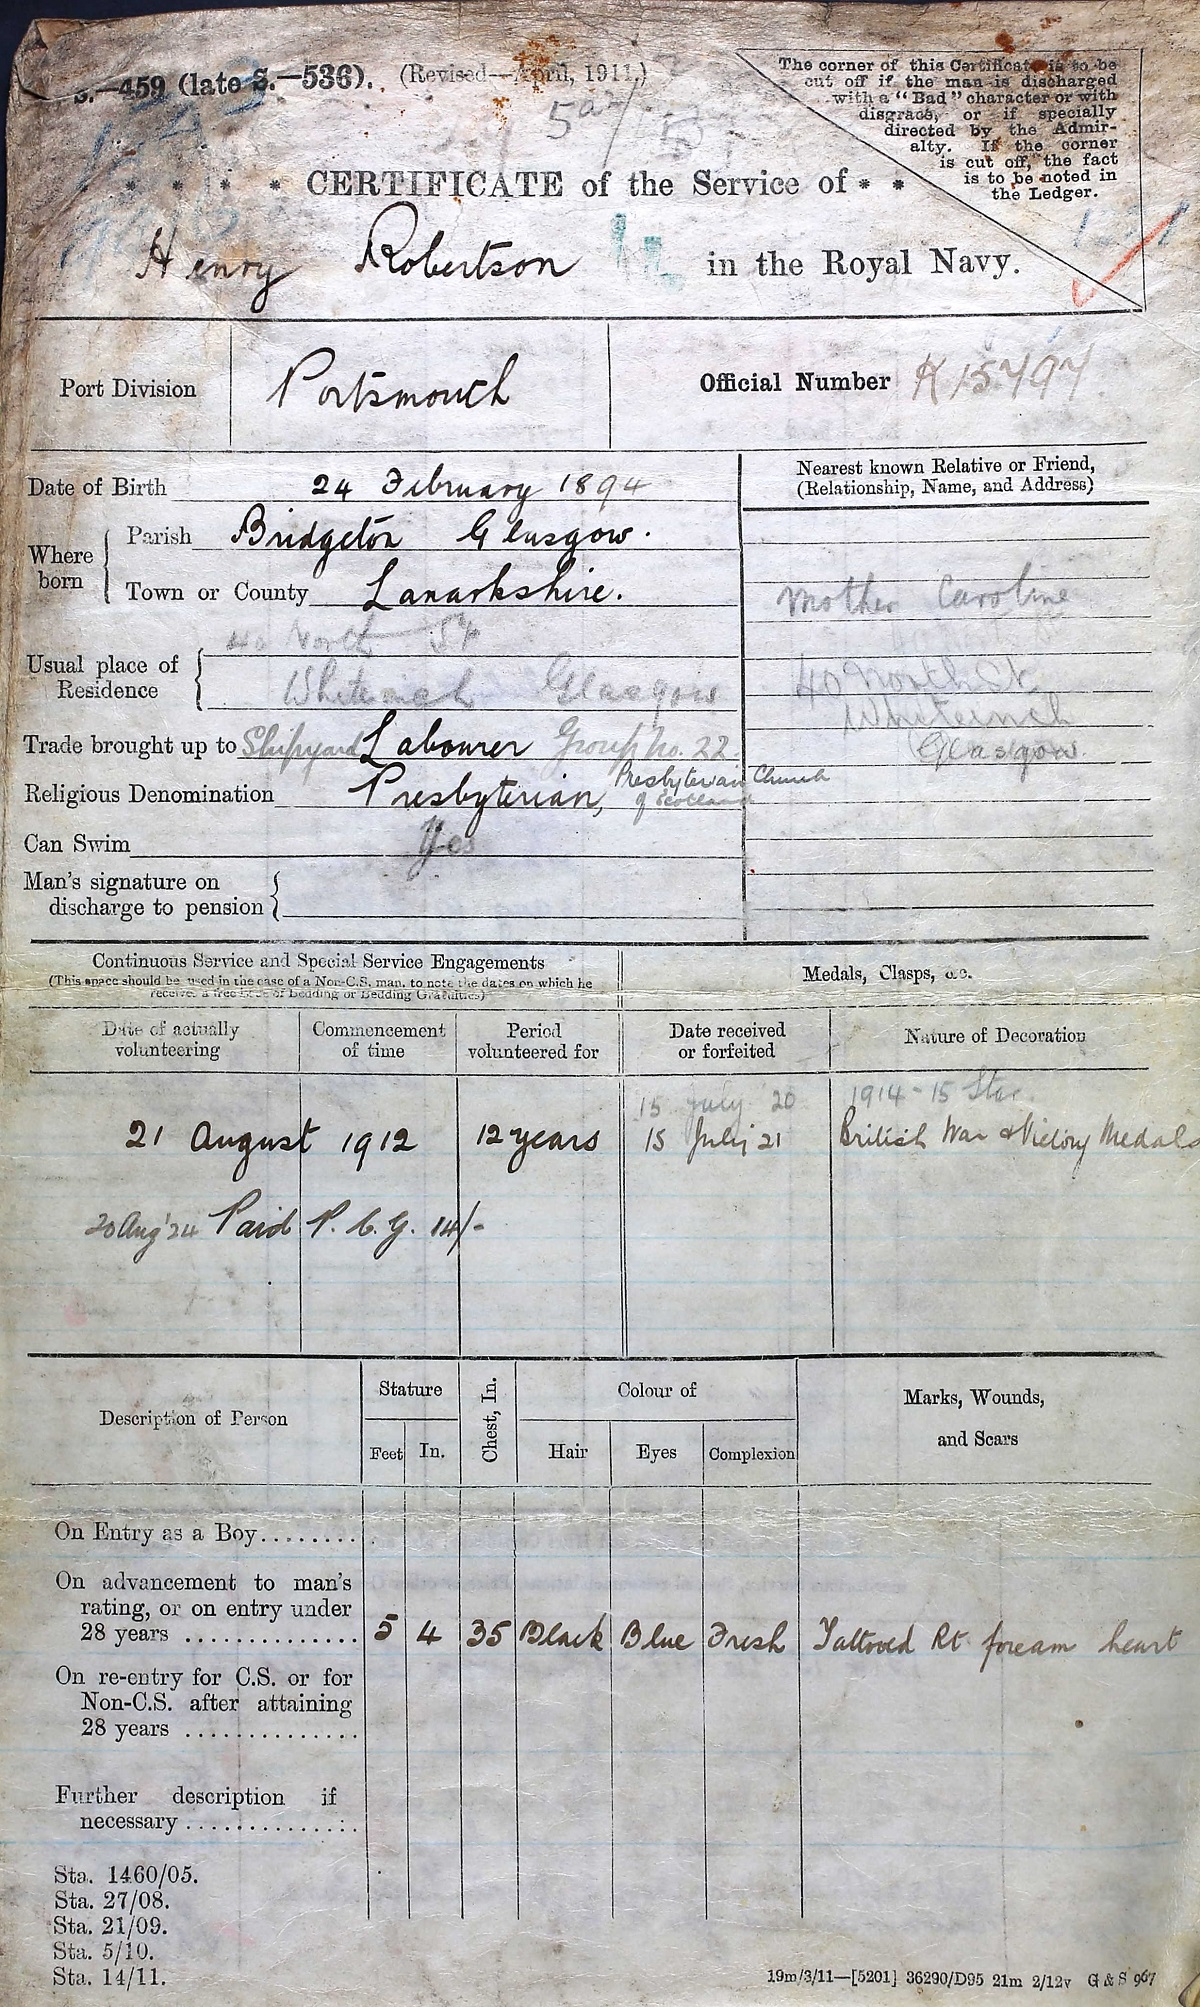 S.—459 (late S.—536). (Revised—April, 1911.)
The corner of this Certificate is to be
cut off if the man is discharged
with a "Bad" character or with
disgrace, or if specially
directed by the Admir-
alty. If the corner
is cut off, the fact
is to be noted in
the Ledger.
CERTIFICATE of the Service of
Henry Robertson in the Royal Navy.
Port Division Portsmouth Official Number K 15797
Date of Birth 24 February 1894
Nearest known Relative or Friend,
(Relationship, Name, and Address)
Where born
Parish Bridgeton Glasgow.
Town or County Lanarkshire.
Mother Caroline
40 North St
Usual place of
Residence
Whiteinch Glasgow
40 North St.
Whiteinch
Glasgow.
Trade brought up to Shipyard Labourer Group No. 22.
Religious Denomination Presbyterian, Presbyterian Church
of Scotland
Can Swim Yes
Man's signature on
discharge to pension
Continuous Service and Special Service Engagements
(This space should be used in the case of a Non-C.S. man, to note the dates on which he
receives a free issue of Bedding or Bedding Gratuities)
Medals, Clasps, &c.
Date of actually
volunteering
Commencement
of time
Period
volunteered for
Date received
or forfeited
Nature of Decoration
15 July 20 1914-15 Star.
21 August 1912 12 years 15 July 21 British War & Victory Medals
20 Aug '24 Paid P. C. G. 14/-
Description of Person
Stature
Feet In.
Chest, In.
Colour of
Hair Eyes Complexion
Marks, Wounds,
and Scars
On Entry as a Boy........
On advancement to man's
rating, or on entry under
28 years ..............
5 4 35 Black Blue Fresh Tattooed Rt foream heart
On re-entry for C.S. or for
Non-C.S. after attaining
28 years ..............
Further description if
necessary ..............
Sta. 1460/05.
Sta. 27/08.
Sta. 21/09.
Sta. 5/10.
Sta. 14/11.
19m/3/11—[5201] 36290/D95 21m 2/12v G & S 967